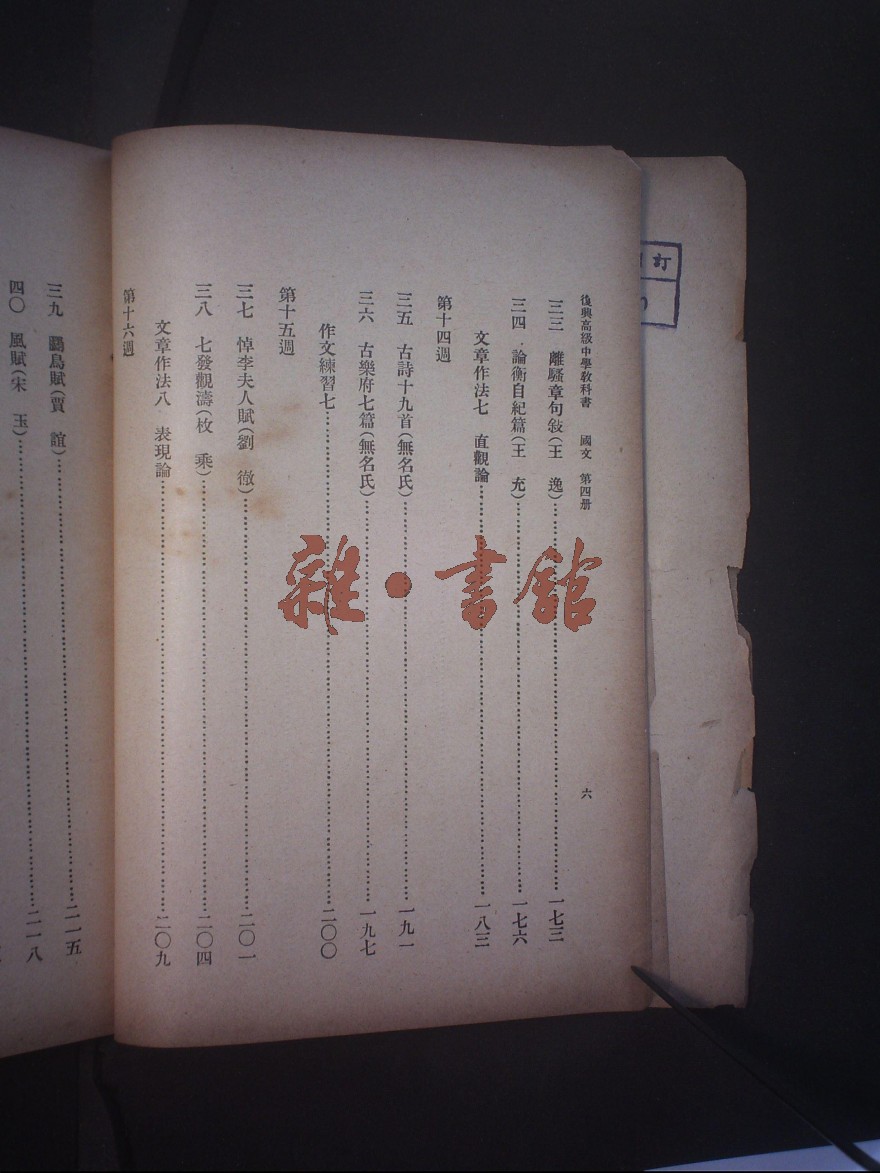 復興高級中學教科書　國文　第四册
六
三三　離騷章句敍(王　逸)……一七三
三四　論衡自紀篇(王　充)……一七六
文章作法七　直觀論……一八三
第十四週
三五　古詩十九首(無名氏)……一九一
三六　古樂府七篇(無名氏)……一九七
作文練習七……二〇〇
第十五週
三七　悼李夫人賦(劉　徹)……二〇一
三八　七發觀濤(枚　乘)……二〇四
文章作法八　表現論……二〇九
第十六週
三九　鵩鳥賦(賈　誼)……二一五
四〇　風賦(宋　玉)……二一八
訂
雜·書館